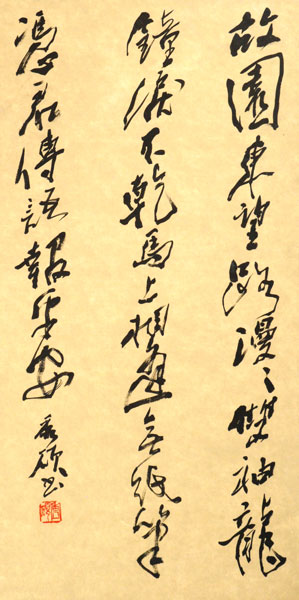 故園東望路漫〻雙袖龍
鐘淚不乾馬上相逢無紙筆
憑君傳語報平安